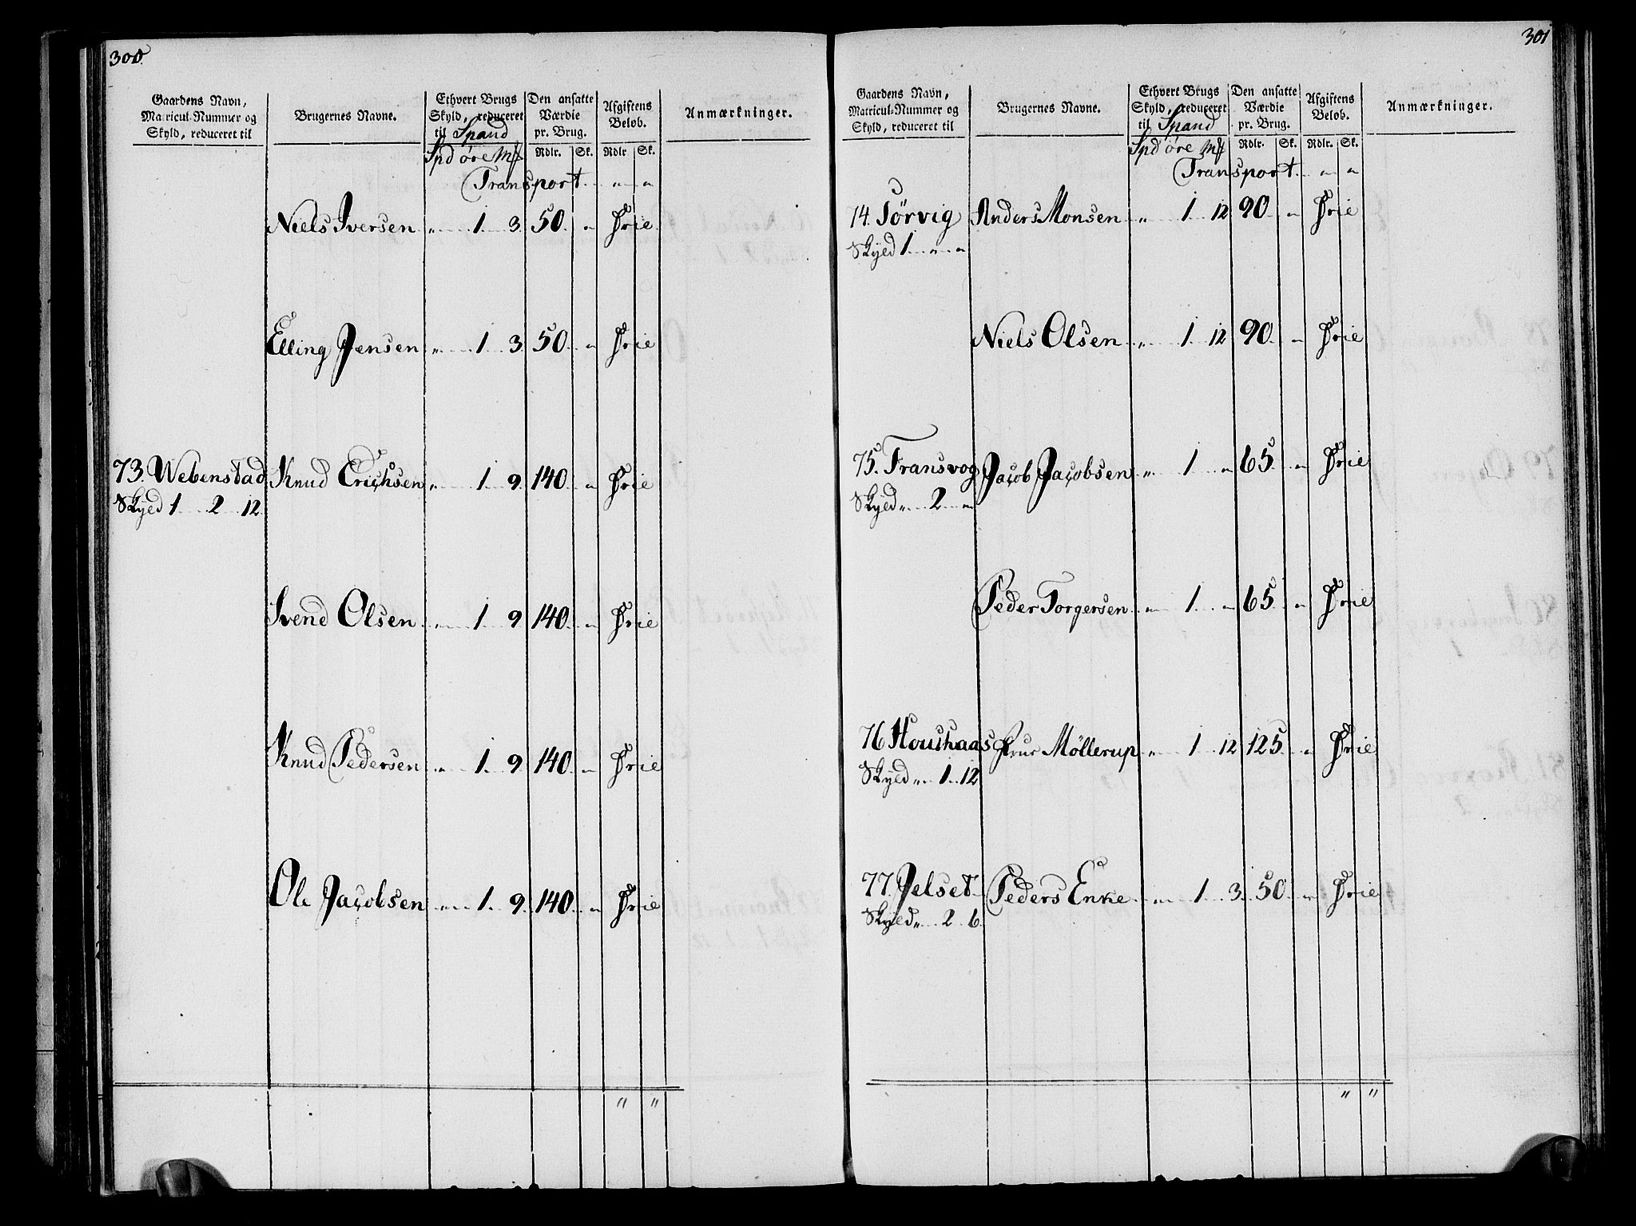 300.
Gaardens Navn, Matricul-Nummer og Skyld, reduceret til
Brugernes Navne.
Ethvert Brugs Skyld, reduceret til Spand
Den ansatte Værdie pr. Brug.
Afgiftens Beløb.
Anmærkninger.
Spd öre Mk Rdlr. Sk. Rdlr Sk.
Transport " "
Niels Iversen " 1 3 50 " Frie
Elling Jensen " 1 3 50 " Frie
73. Webenstad Knud Erichsen " 1 9 140 " Frie
Skyld 1 2 12
Svend Olsen " 1 9 140 " Frie
Knud Pedersen " 1 9 140 " Frie
Ole Jacobsen " 1 9 140 " Frie
" "
301
Gaardens Navn, Matricul-Nummer og Skyld, reduceret til
Brugernes Navne.
Ethvert Brugs Skyld, reduceret til Spand
Den ansatte Værdie pr. Brug.
Afgiftens Beløb.
Anmærkninger.
Spd öre Mk Rdlr. Sk. Rdlr. Sk.
Transport " "
14. Törvig Anders Monsen " 1 12 90 " Frie
Skyld 1 " "
Niels Olsen " 1 12 90 " Frie
75. Transvog Jacob Jacobsen " 1 " 65 " Frie
Skyld " 2 "
Peder Torgersen " 1 " 65 " Frie
76 Houshaas Frue Møllerup " 1 12 125 " Frie
Skyld " 1 12
77. Jelset Peders Enke " 1 3 50 " Frie
Skyld " 2 6
" "